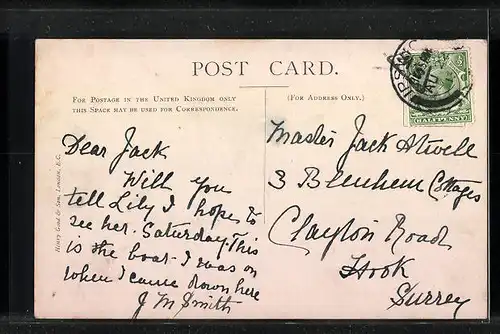 POST CARD.
FOR POSTAGE IN THE UNITED KINGDOM ONLY
THIS SPACE MAY BE USED FOR CORRESPONDENCE.
(FOR ADDRESS ONLY.)
HALFPENNY
Henry Good & Son, London, E.C.
Dear Jack
Will you
tell Lily I hope to
see her. Saturday. This
is the boat I was on
when I came down here
J M Smith
Master Jack Atwell
3 Blenhem Cottages
Clayton Road
Hook
Surrey